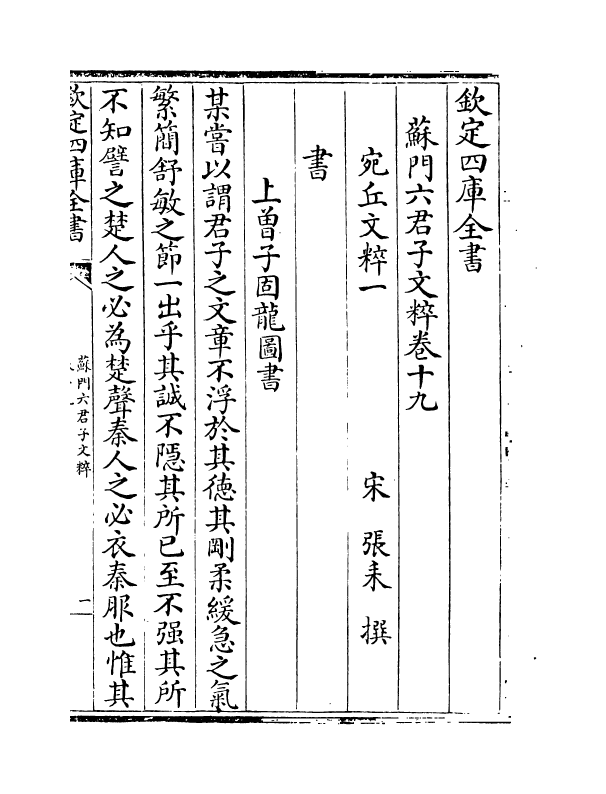 欽定四庫全書
蘇門六君子文粹卷十九
宛丘文粹一　宋　張耒　撰
書
上曽子固龍圖書
某嘗以謂君子之文章不浮於其徳其剛柔緩急之氣
繁簡舒敏之節一出乎其誠不隱其所已至不强其所
不知譬之楚人之必為楚聲秦人之必衣秦服也惟其
欽定四庫全書
蘇門六君子文粹
一